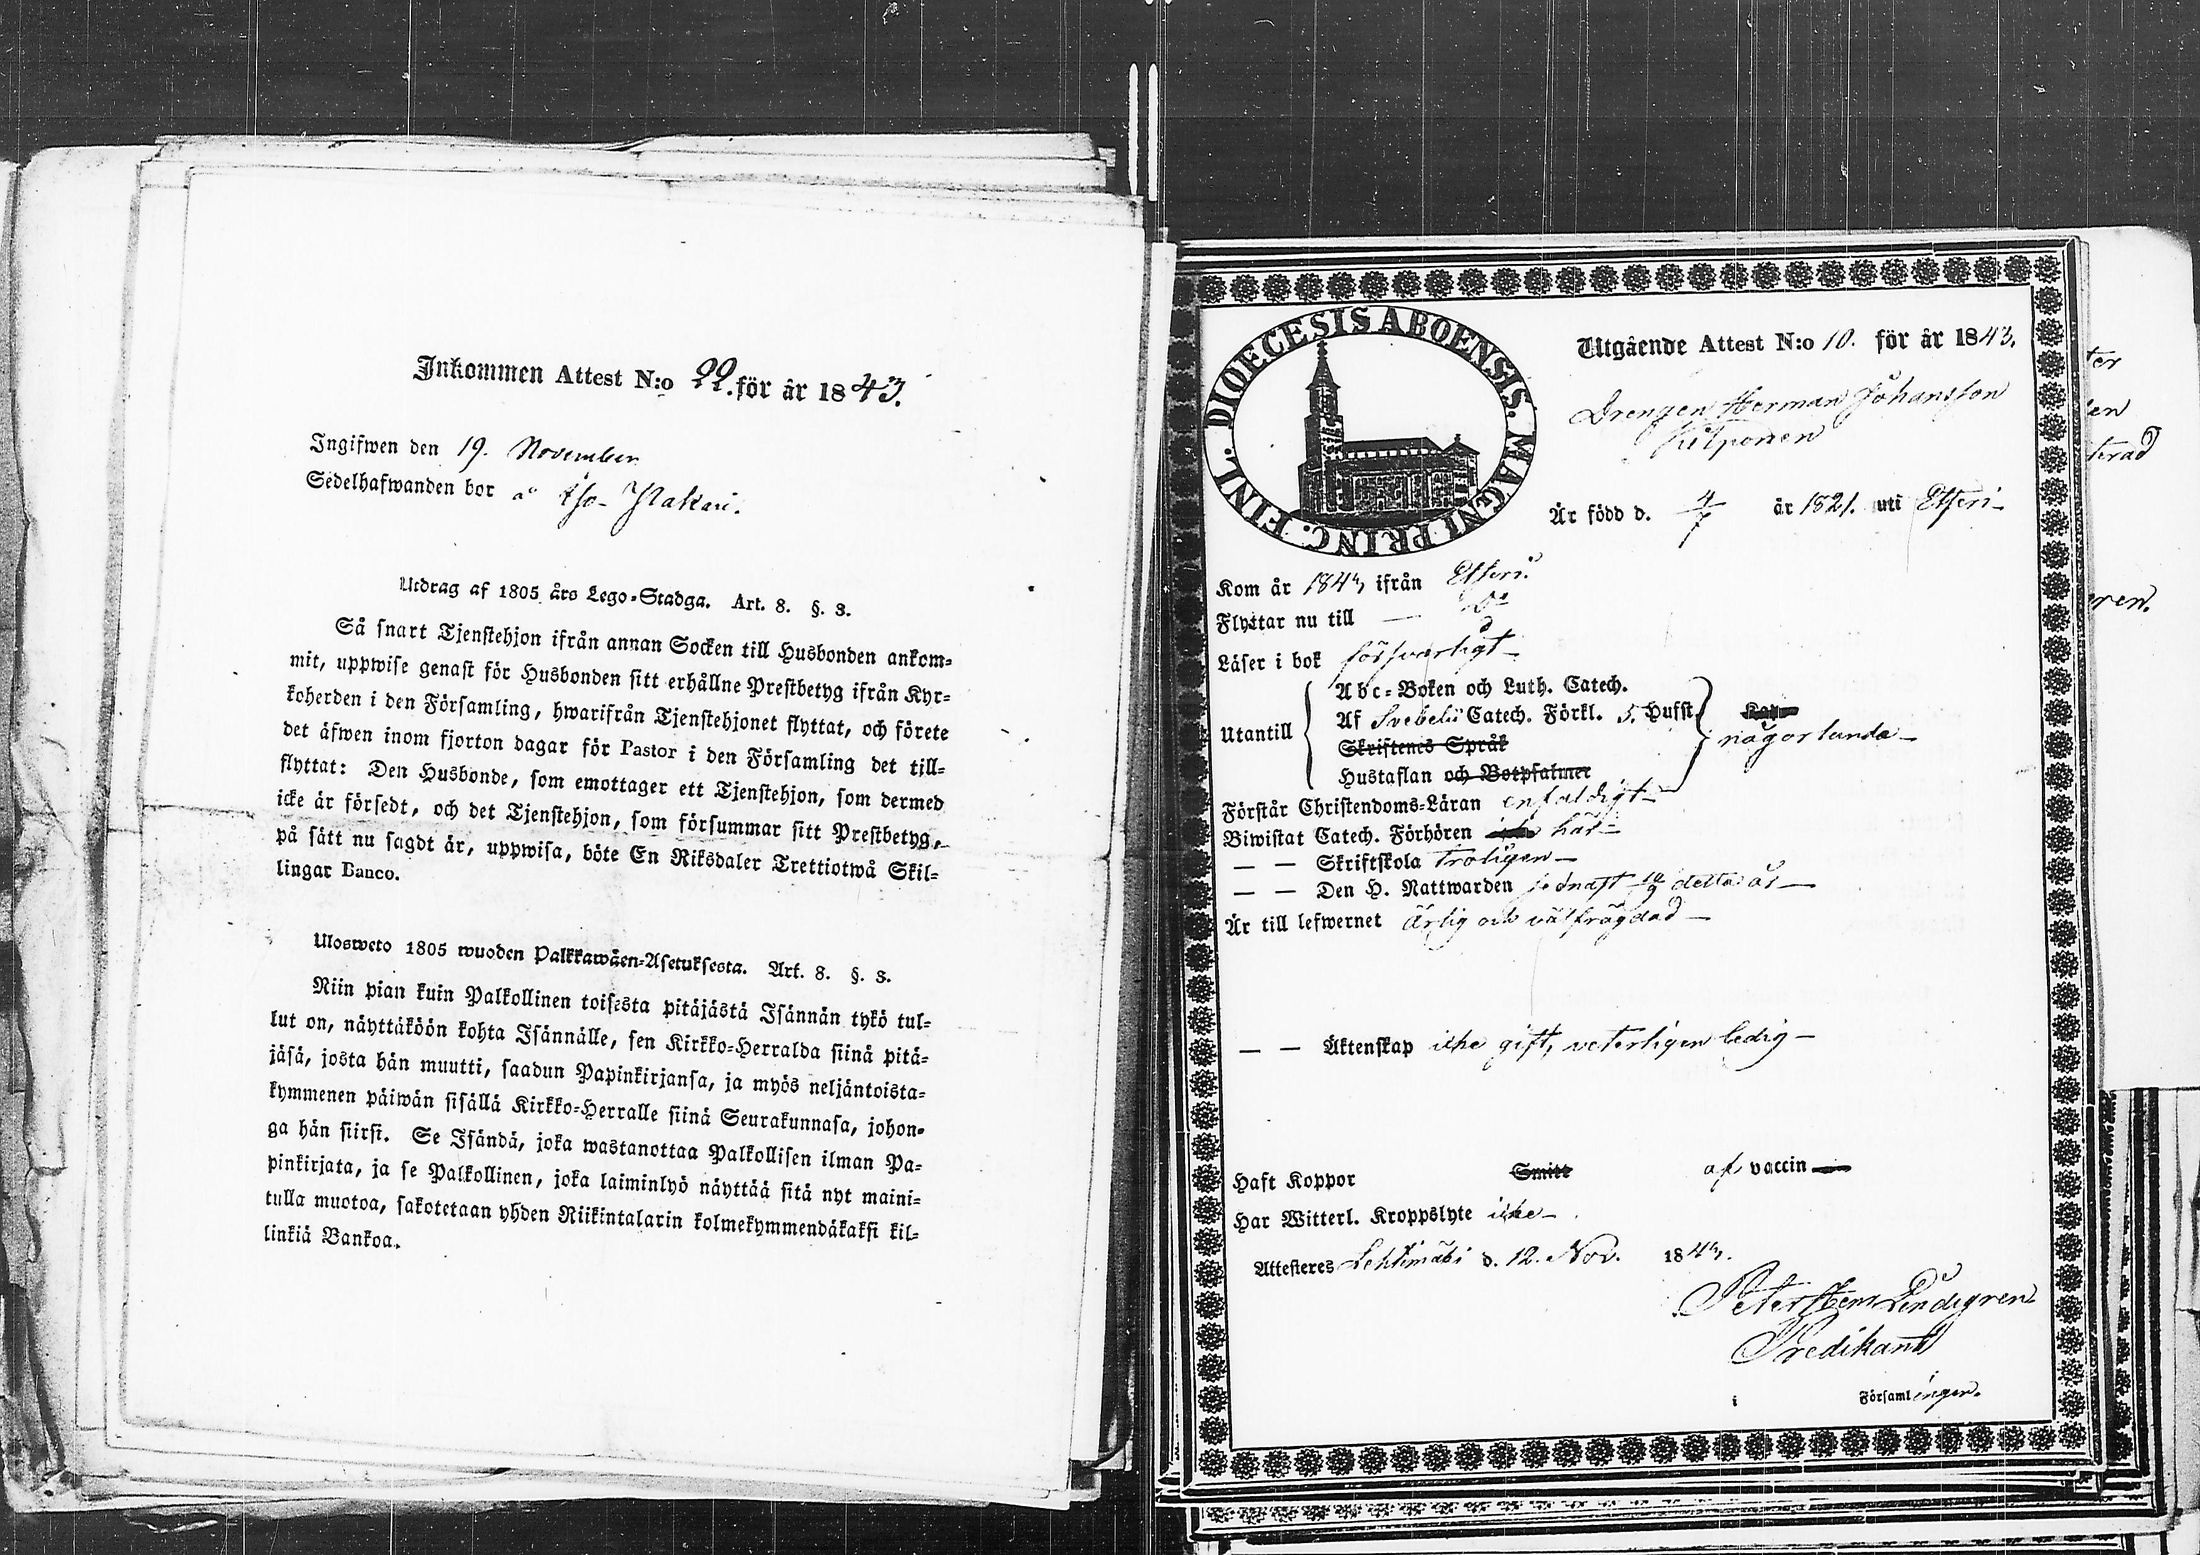 Inkommen Attest N:o 22. för år 1843.
Ingifwen den 19. November
Sedelhafwanden bor å
Utdrag af 1805 års Lego-Stadga. Art. 8. §. 3.
Så snart Tjenstehjon ifrån annan Socken till Husbonden ankom-
mit, uppwise genast för Husbonden sitt erhållne Prestbetyg ifrån Kyr-
koherden i den Församling, hwarifrån Tjenstehjonet flyttat, och förete
det äfwen inom fjorton dagar för Pastor i den Församling det till-
flyttat: Den Husbonde, som emottager ett Tjenstehjon, som dermed
icke är försedt, och det Tjenstehjon, som försummar sitt Prestbetyg,
på sätt nu sagdt är, uppwisa, böte En Riksdaler Trettiotwå Skil-
lingar Banco.
Ulosweto 1805 wuoden Palkkawäen-Asetuksesta. Art. 8. §. 3.
Niin pian kuin Palkollinen toisesta pitäjästä Isännän tykö tul-
lut on, näyttäköön kohta Isännälle, sen Kirkko-Herralda siinä pitä-
jäsä, josta hän muutti, saadun Papinkirjansa, ja myös neljäntoista-
kymmenen päiwän sisällä Kirkko-Herralle siinä Seurakunnasa, johon-
ga hän siirsi. Se Isändä, joka wastanottaa Palkollisen ilman Pa-
pinkirjata, ja se Palkollinen, joka laiminlyö näyttää sitä nyt maini-
tulla muotoa, sakotetaan yhden Riikintalarin kolmekymmendäkaksi kil-
linkiä Bankoa.
DIOECESIS ABOENSIS. MAGNI PRINC. FINL.
Utgående Attest N:o 10. för år 1843.
Drengen Herman Johansson
Kilponen
Är född d. 4/7 år 1821. uti Etseri
Kom år 1843 ifrån Etseri
Flyttar nu till — Do
Läser i bok försvarligt
Utantill
Abc-Boken och Luth. Catech.
Af Svebelii Catech. Förkl. 5. Hufst.
Skriftenes Språk
Hustaflan och Botpsalmer
någorlunda
Förstår Christendoms-Läran enfaldigt
Biwistat Catech. Förhören här
— — Skriftskola troligen
— — Den H. Nattwarden sednast 10/9 detta år
Är till lefwernet ärlig och välfrägdad
— — Äktenskap icke gift, veterligen ledig
Haft Koppor Smitt af vaccin
Har Witterl. Kroppslyte icke
Attesteres Lehtimäki d. 12. Nov. 1843.
Peter Sten Lindegren
Predikant
i Församlingen.